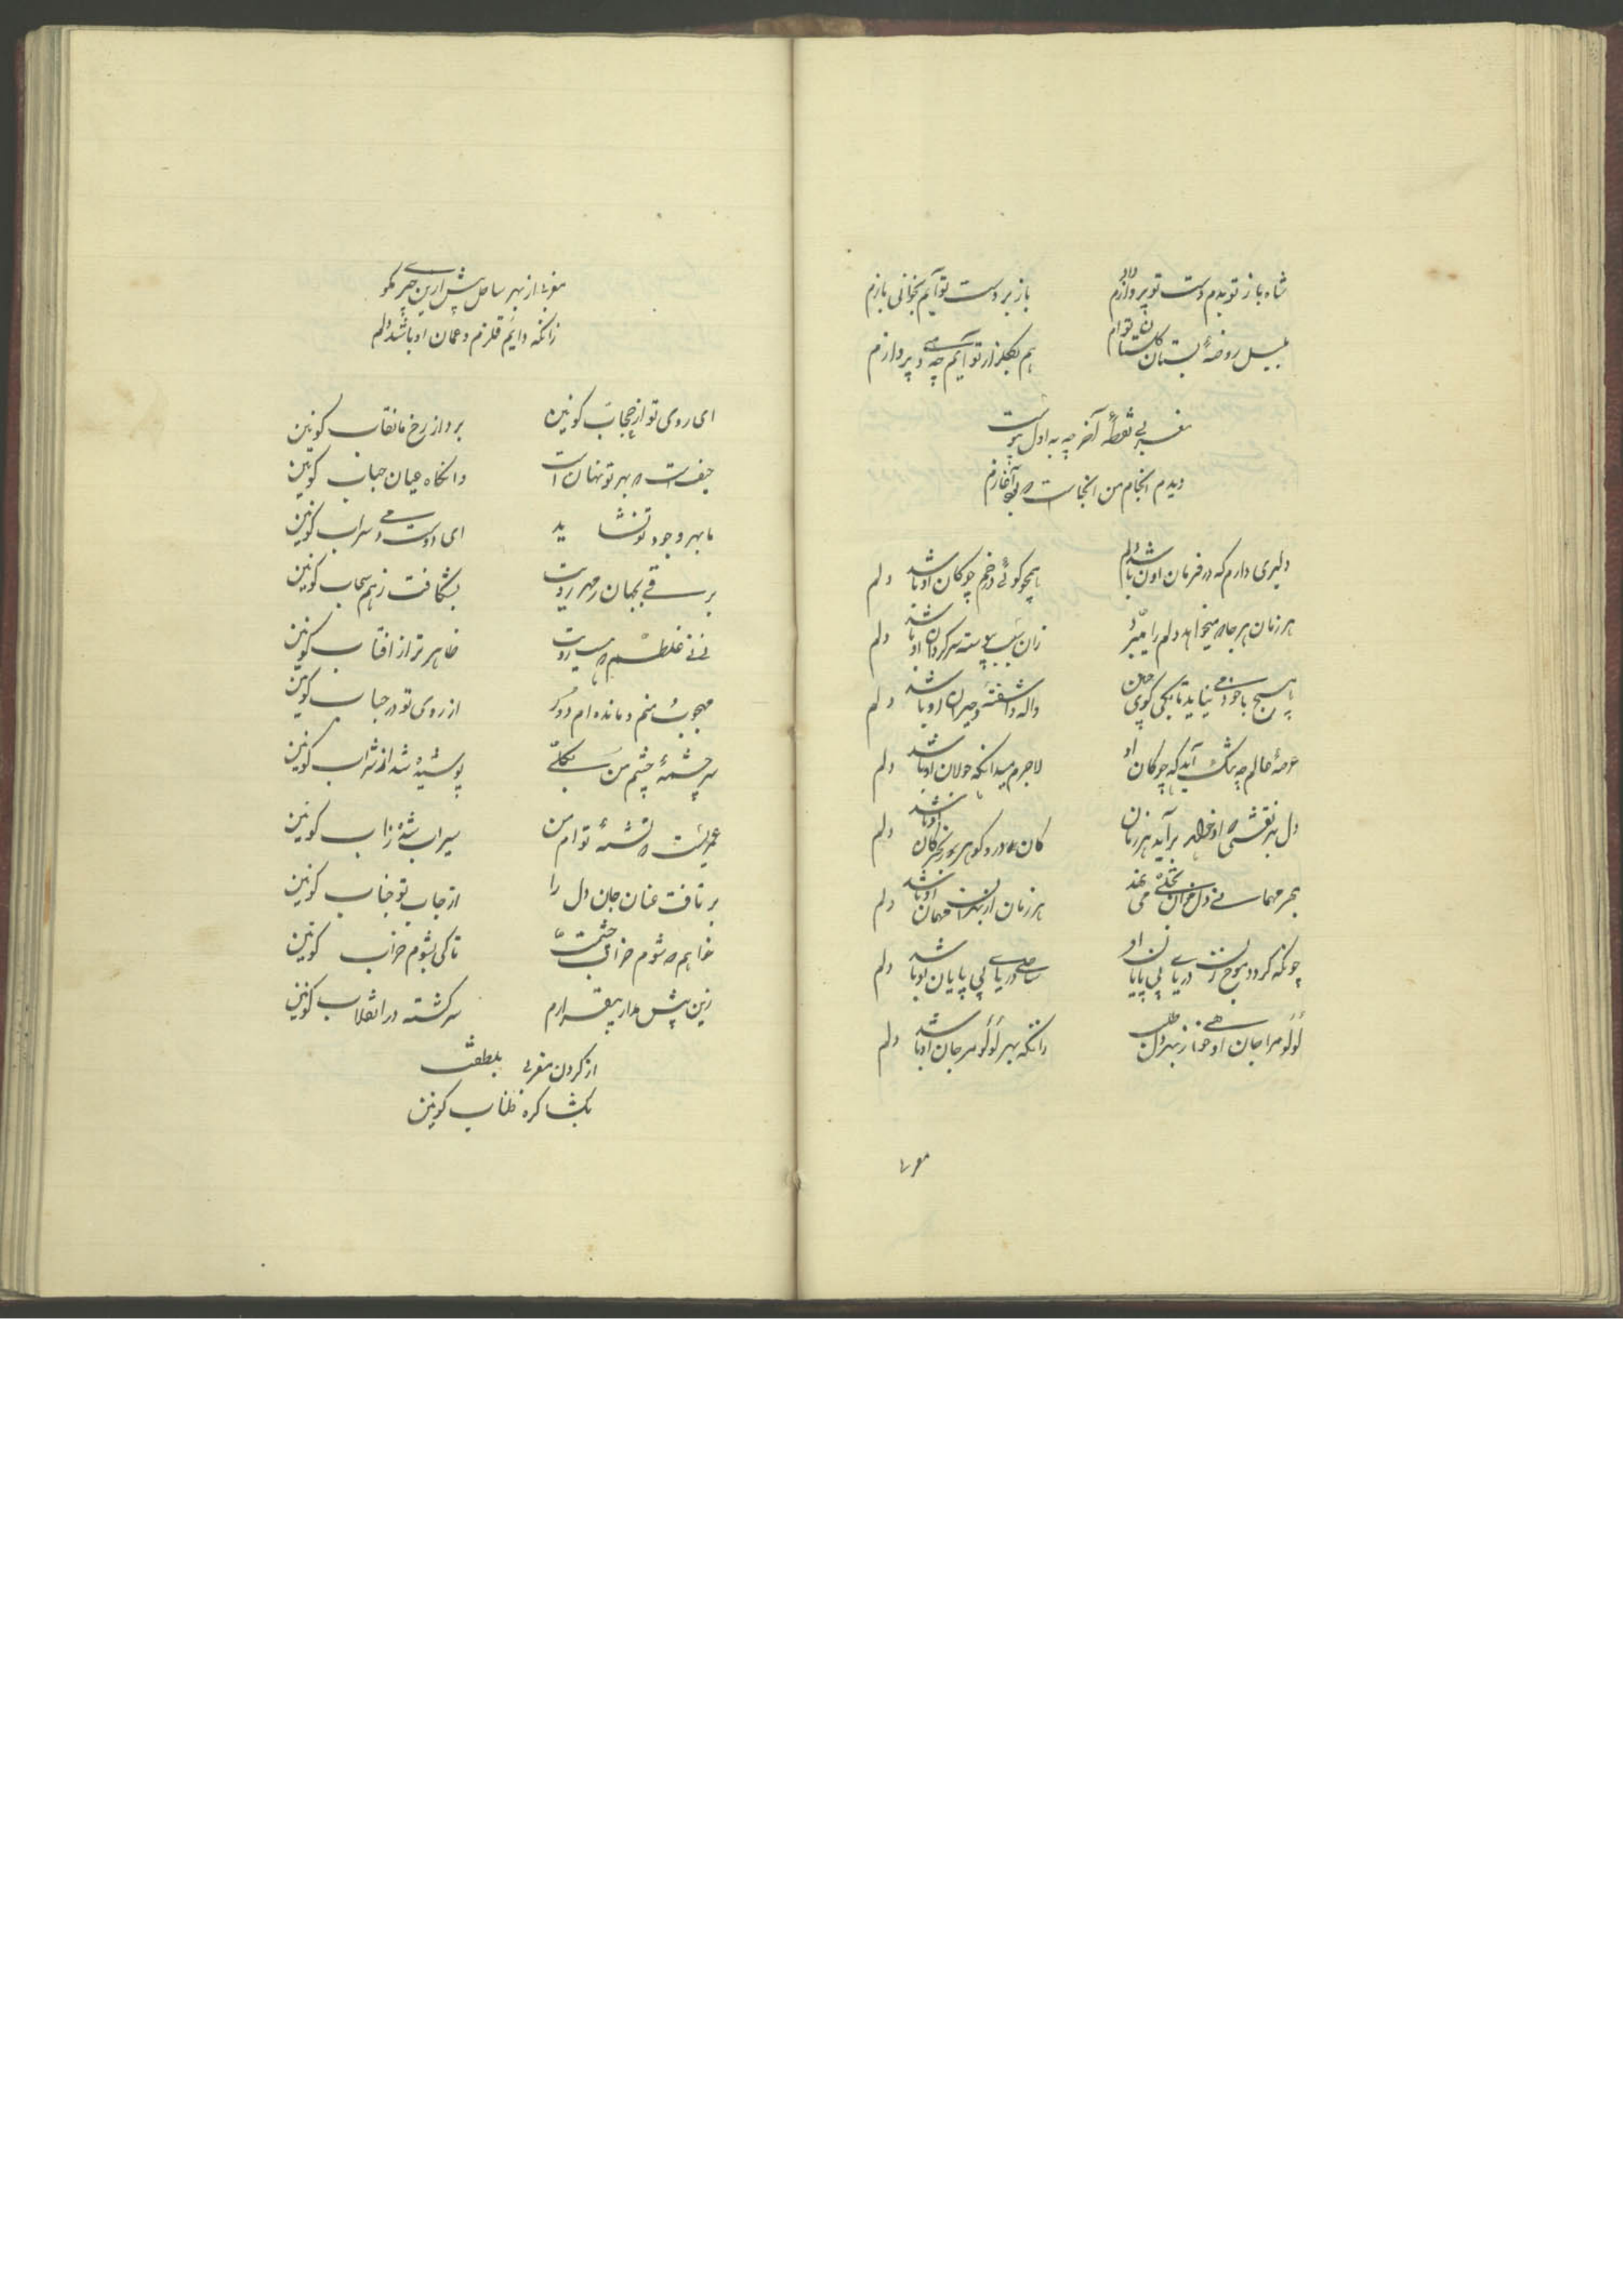 شاه باز تو بدم دست تو پروازم داد باز بر دست تو آیم بخوانی بازم
بلبل روضهٔ بستان گلستان توام هم بگلزار تو آیم چه دمی پروازم
مغربی نقطهٔ آخر چه به اول پیوست
دیدم انجام من انجاست که بود آغازم
دلبری دارم که در فرمان او باشد دلم همچو گوئی در خم چوگان او باشد دلم
هر زمان هر جا که میخواهد دلم را میبرد زان سبب پیوسته سرگردان او باشد دلم
هیچ با خود می نیاید تا بکی گوئی چنین واله و آشفته و حیران او باشد دلم
عرصهٔ عالم چه تنگ آید که چوگان او لاجرم میدانکه جولان او باشد دلم
دل بهر نقشی که او خواهد برآید هر زمان کان
بهر مهمانی دل خوان تجلی می نهد هر زمان از بهر آن مهمان او باشد دلم
چونکه گردد موج زن دریای بی پایان او ساحل دریای بی پایان او باشد دلم
لؤلؤ مرجان او خواهی از بهر دل طلب زانکه بهر لؤلؤ مرجان او باشد دلم
مغربی از بهر ساحل پیش ازین چیزی مگو
زانکه دایم قلزم و عمان او باشد دلم
ای روی تو از حجاب کونین بردار ز رخ نقاب کونین
حیف است که بهر تو نهان است وانگاه عیان حباب کونین
با بهر وجود تو نشاید ای دوست دمی سراب کونین
برقی بجهان ز مهر رویت بشکافت ز هم سحاب کونین
نی نی غلطم که هست رویت ظاهر تر از افتاب کونین
مهجوب منم و مانده ام دور از روی تو در حجاب کونین
سرچشمهٔ چشم من بکلی پوشیده شد از شراب کونین
عمریست که تشنهٔ توام من سیراب شده ز اب کونین
بر تافت عنان جان دل را از جناب تو جناب کونین
خواهم که شوم خراب چشمت تا کی بشوم خراب کونین
زین پیش مدار بیقرارم سرگشته در انقلاب کونین
از گردن مغربی بلطفت
بگشا گره طناب کونین